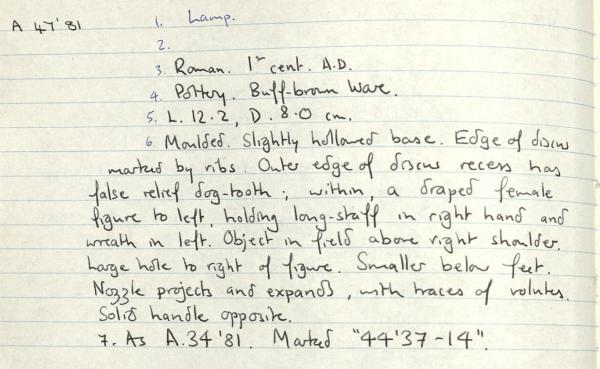 A 47'81 1. Lamp.
2.
3. Roman. 1st cent. A.D.
4. Pottery. Buff-brown Ware.
5. L. 12.2, D. 8.0 cm.
6. Moulded. Slightly hollowed base. Edge of discus
marked by ribs. Outer edge of discus recess has
false relief dog-tooth; within, a draped female
figure to left, holding long-staff in right hand and
wreath in left. Object in field above right shoulder.
Large hole to right of figure. Smaller below feet.
Nozzle projects and expands, with traces of volutes.
Solid handle opposite.
7. As A.34'81. Marked "44'37-14".